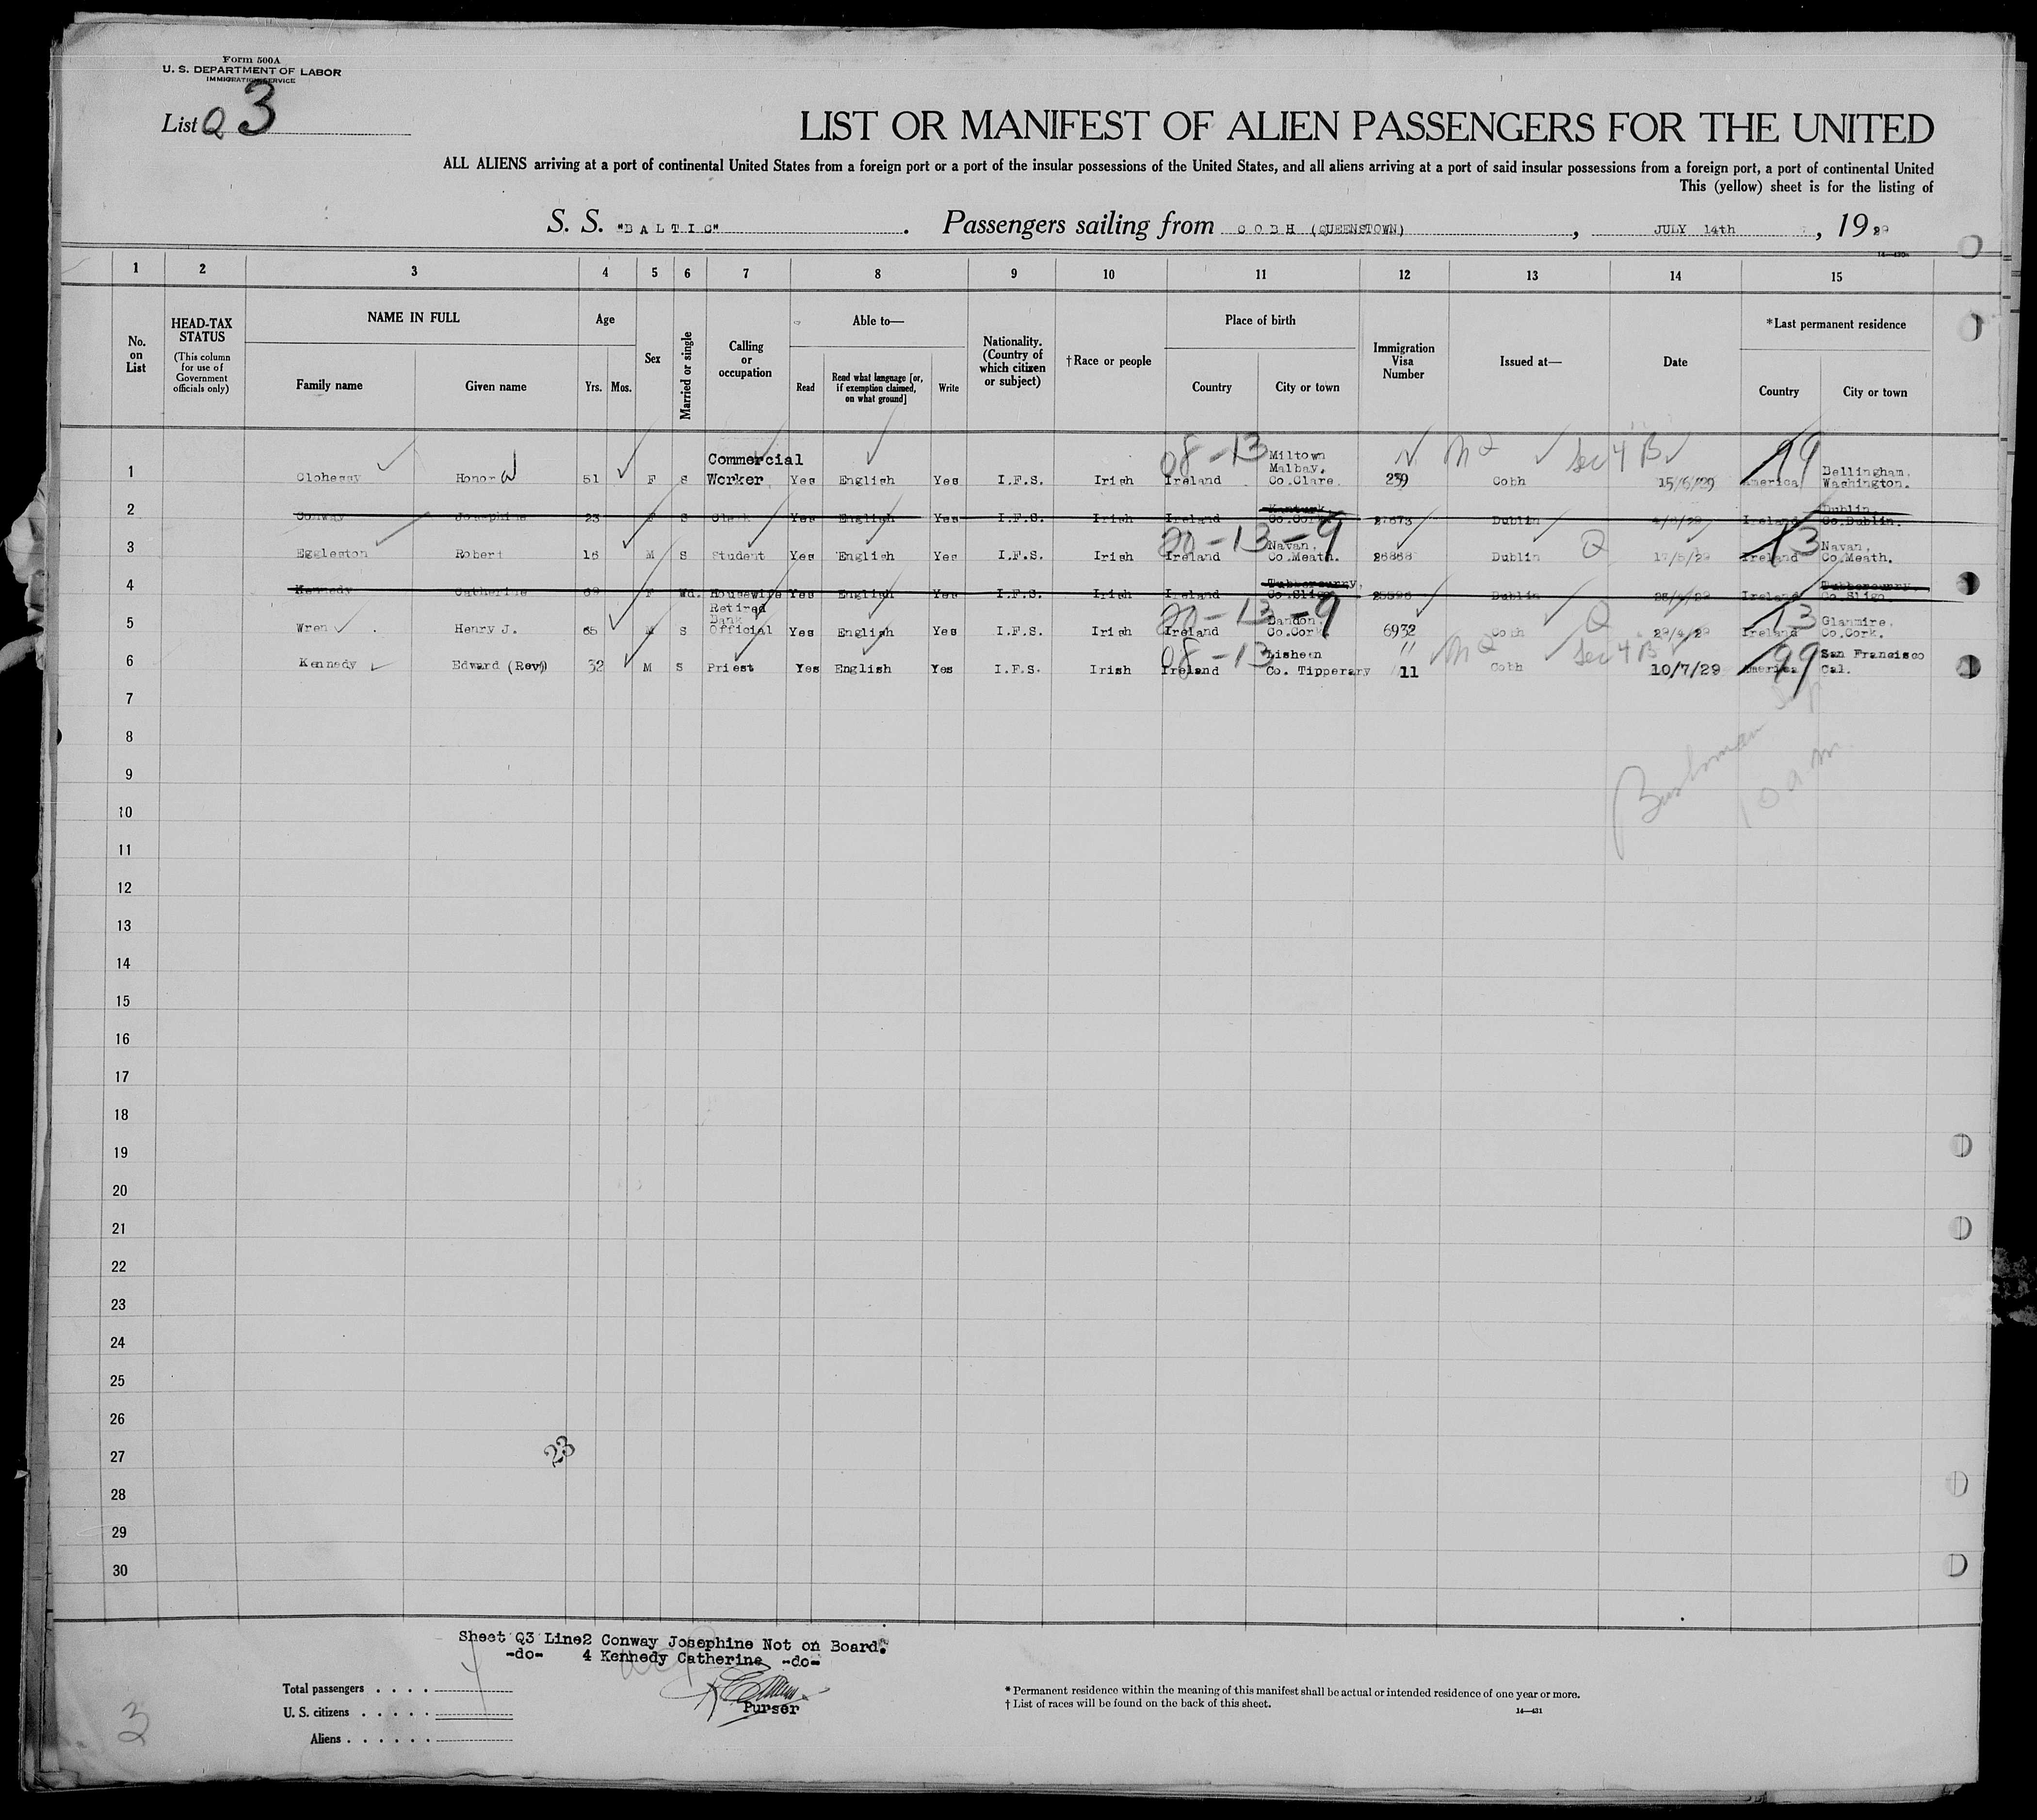 Form 500A
U. S. DEPARTMENT OF LABOR
IMMIGRATION SERVICE
List Q 3
LIST OR MANIFEST OF ALIEN PASSENGERS FOR THE UNITED
ALL ALIENS arriving at a port of continental United States from a foreign port or a port of the insular possessions of the United States, and all aliens arriving at a port of said insular possessions from a foreign port, a port of continental United
This (yellow) sheet is for the listing of
S. S. "BALTIC". Passengers sailing from COBH (QUEENSTOWN), JULY 14th, 1929
1 2 3 4 5 6 7 8 9 10 11 12 13 14 15
No. on List
HEAD-TAX STATUS (This column for use of Government officials only)
NAME IN FULL
Family name Given name
Age
Yrs. Mos.
Sex
Married or single
Calling or occupation
Able to—
Read Read what language [or, if exemption claimed, on what ground] Write
Nationality. (Country of which citizen or subject)
†Race or people
Place of birth
Country City or town
Immigration Visa Number
Issued at—
Date
*Last permanent residence
Country City or town
1 Clohessy Honor 51 F S Commercial Worker Yes English Yes I.F.S. Irish Ireland 08-13 Miltown Malbay. Co.Clare. 239 Cobh Sec 4 B 15/6/29 America 99 Bellingham, Washington.
2 Conway Josephine 23 F S Clerk Yes English Yes I.F.S. Irish Ireland Kanturk Co.Cork Dublin Ireland Dublin, Co.Dublin.
3 Eggleston Robert 16 M S Student Yes English Yes I.F.S. Irish Ireland 20-13-9 Navan, Co.Meath. 26868 Dublin Q Ireland 13 Navan, Co.Meath.
4 Kennedy Catherine 69 F Wd. Housewife Yes English Yes I.F.S. Irish Ireland Tubbercurry, Co.Sligo Dublin Ireland Tubbercurry. Co.Sligo.
5 Wren Henry J. 65 M S Retired Bank Official Yes English Yes I.F.S. Irish Ireland 20-13-9 Bandon, Co.Cork 6932 Cobh Q 29/4/29 Ireland 13 Glanmire, Co.Cork.
6 Kennedy Edward (Rev) 32 M S Priest Yes English Yes I.F.S. Irish Ireland 08-13 Lisheen Co. Tipperary 11 Cobh Sec 4 B 10/7/29 America 99 San Francisco Cal.
7
8
9
10
10 am
11
12
13
14
15
16
17
18
19
20
21
22
23
24
25
26
27
23
28
29
30
Sheet Q3 Line2 Conway Josephine Not on Board.
-do- 4 Kennedy Catherine -do-
Purser
Total passengers . . . .
U. S. citizens . . . . .
Aliens . . . . . .
3
* Permanent residence within the meaning of this manifest shall be actual or intended residence of one year or more.
† List of races will be found on the back of this sheet.
14—431